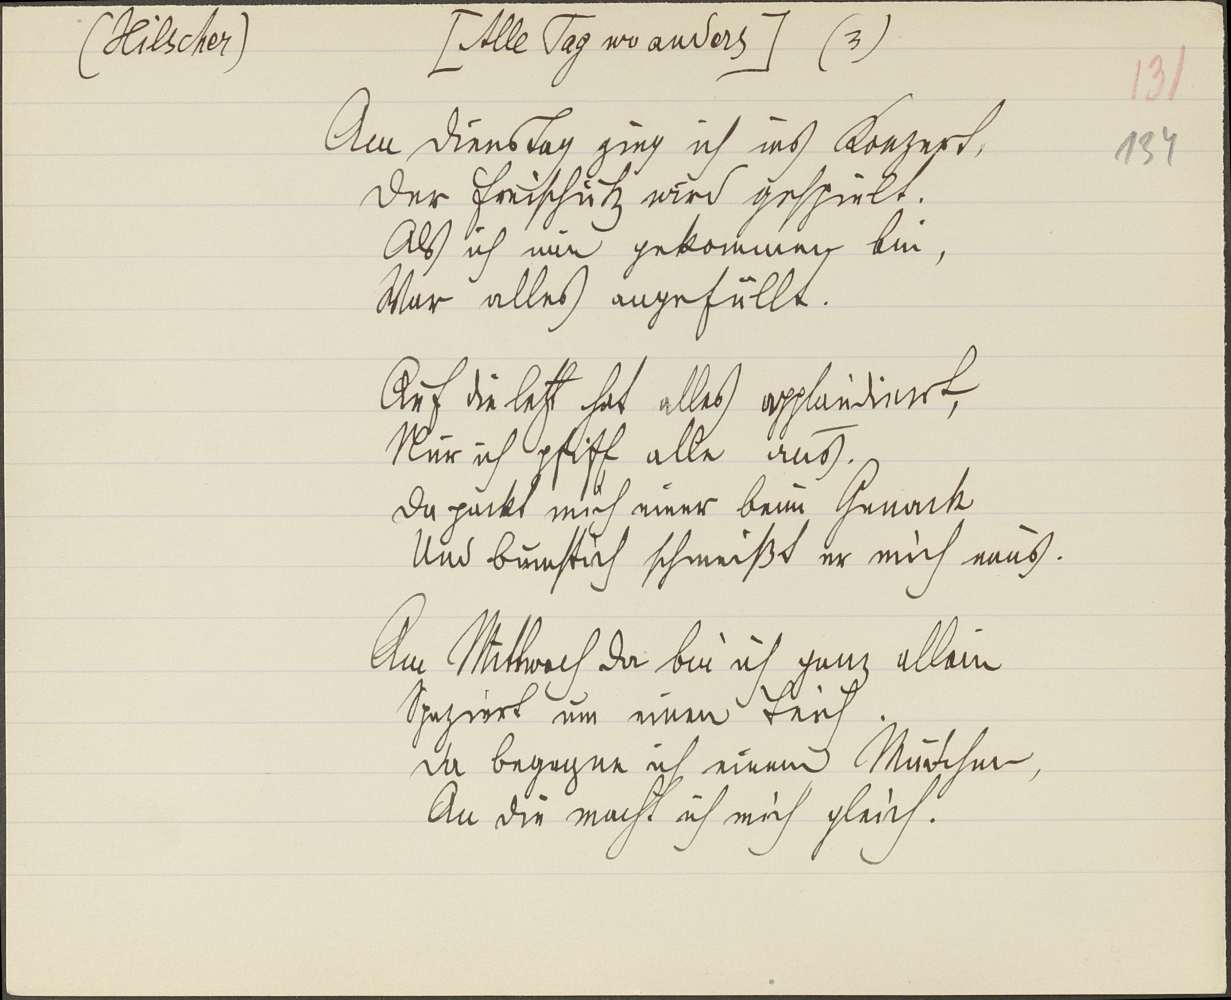 (Hilscher) [Alle Tag wo anders] (3)
131
134
Am Dienstag ging ich ins Konzert,
Der Freischütz wird gespielt.
Als ich nun gekommen bin,
War alles angefüllt.
Auf die letzt hat alles applaudiert,
Nur ich pfiff alle aus.
Da packt mich einer beim Genack
Und bumstich schmeißt er mich naus.
Am Mittwoch da bin ich ganz allein
Spaziert um einen Teich.
Da begegne ich einem Mädchen,
An die macht ich mich gleich.